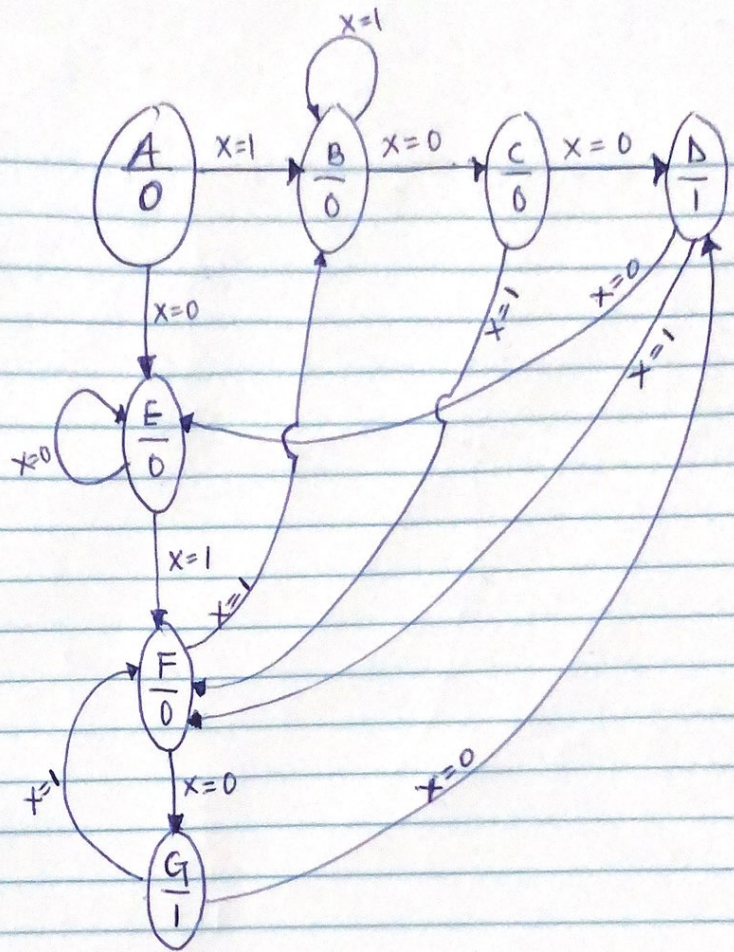 x=1
A
0
x=1
B
0
x=0
C
0
x=0
D
1
x=0
x=1
x=0
x=1
E
0
x=0
x=1
x=1
F
0
x=1
x=0
x=0
G
1